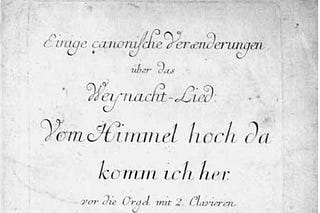 Einige canoniſche Verænderungen
über das
Weynacht-Lied:
Vom Himmel hoch da
komm ich her.
vor die Orgel mit 2. Clavieren